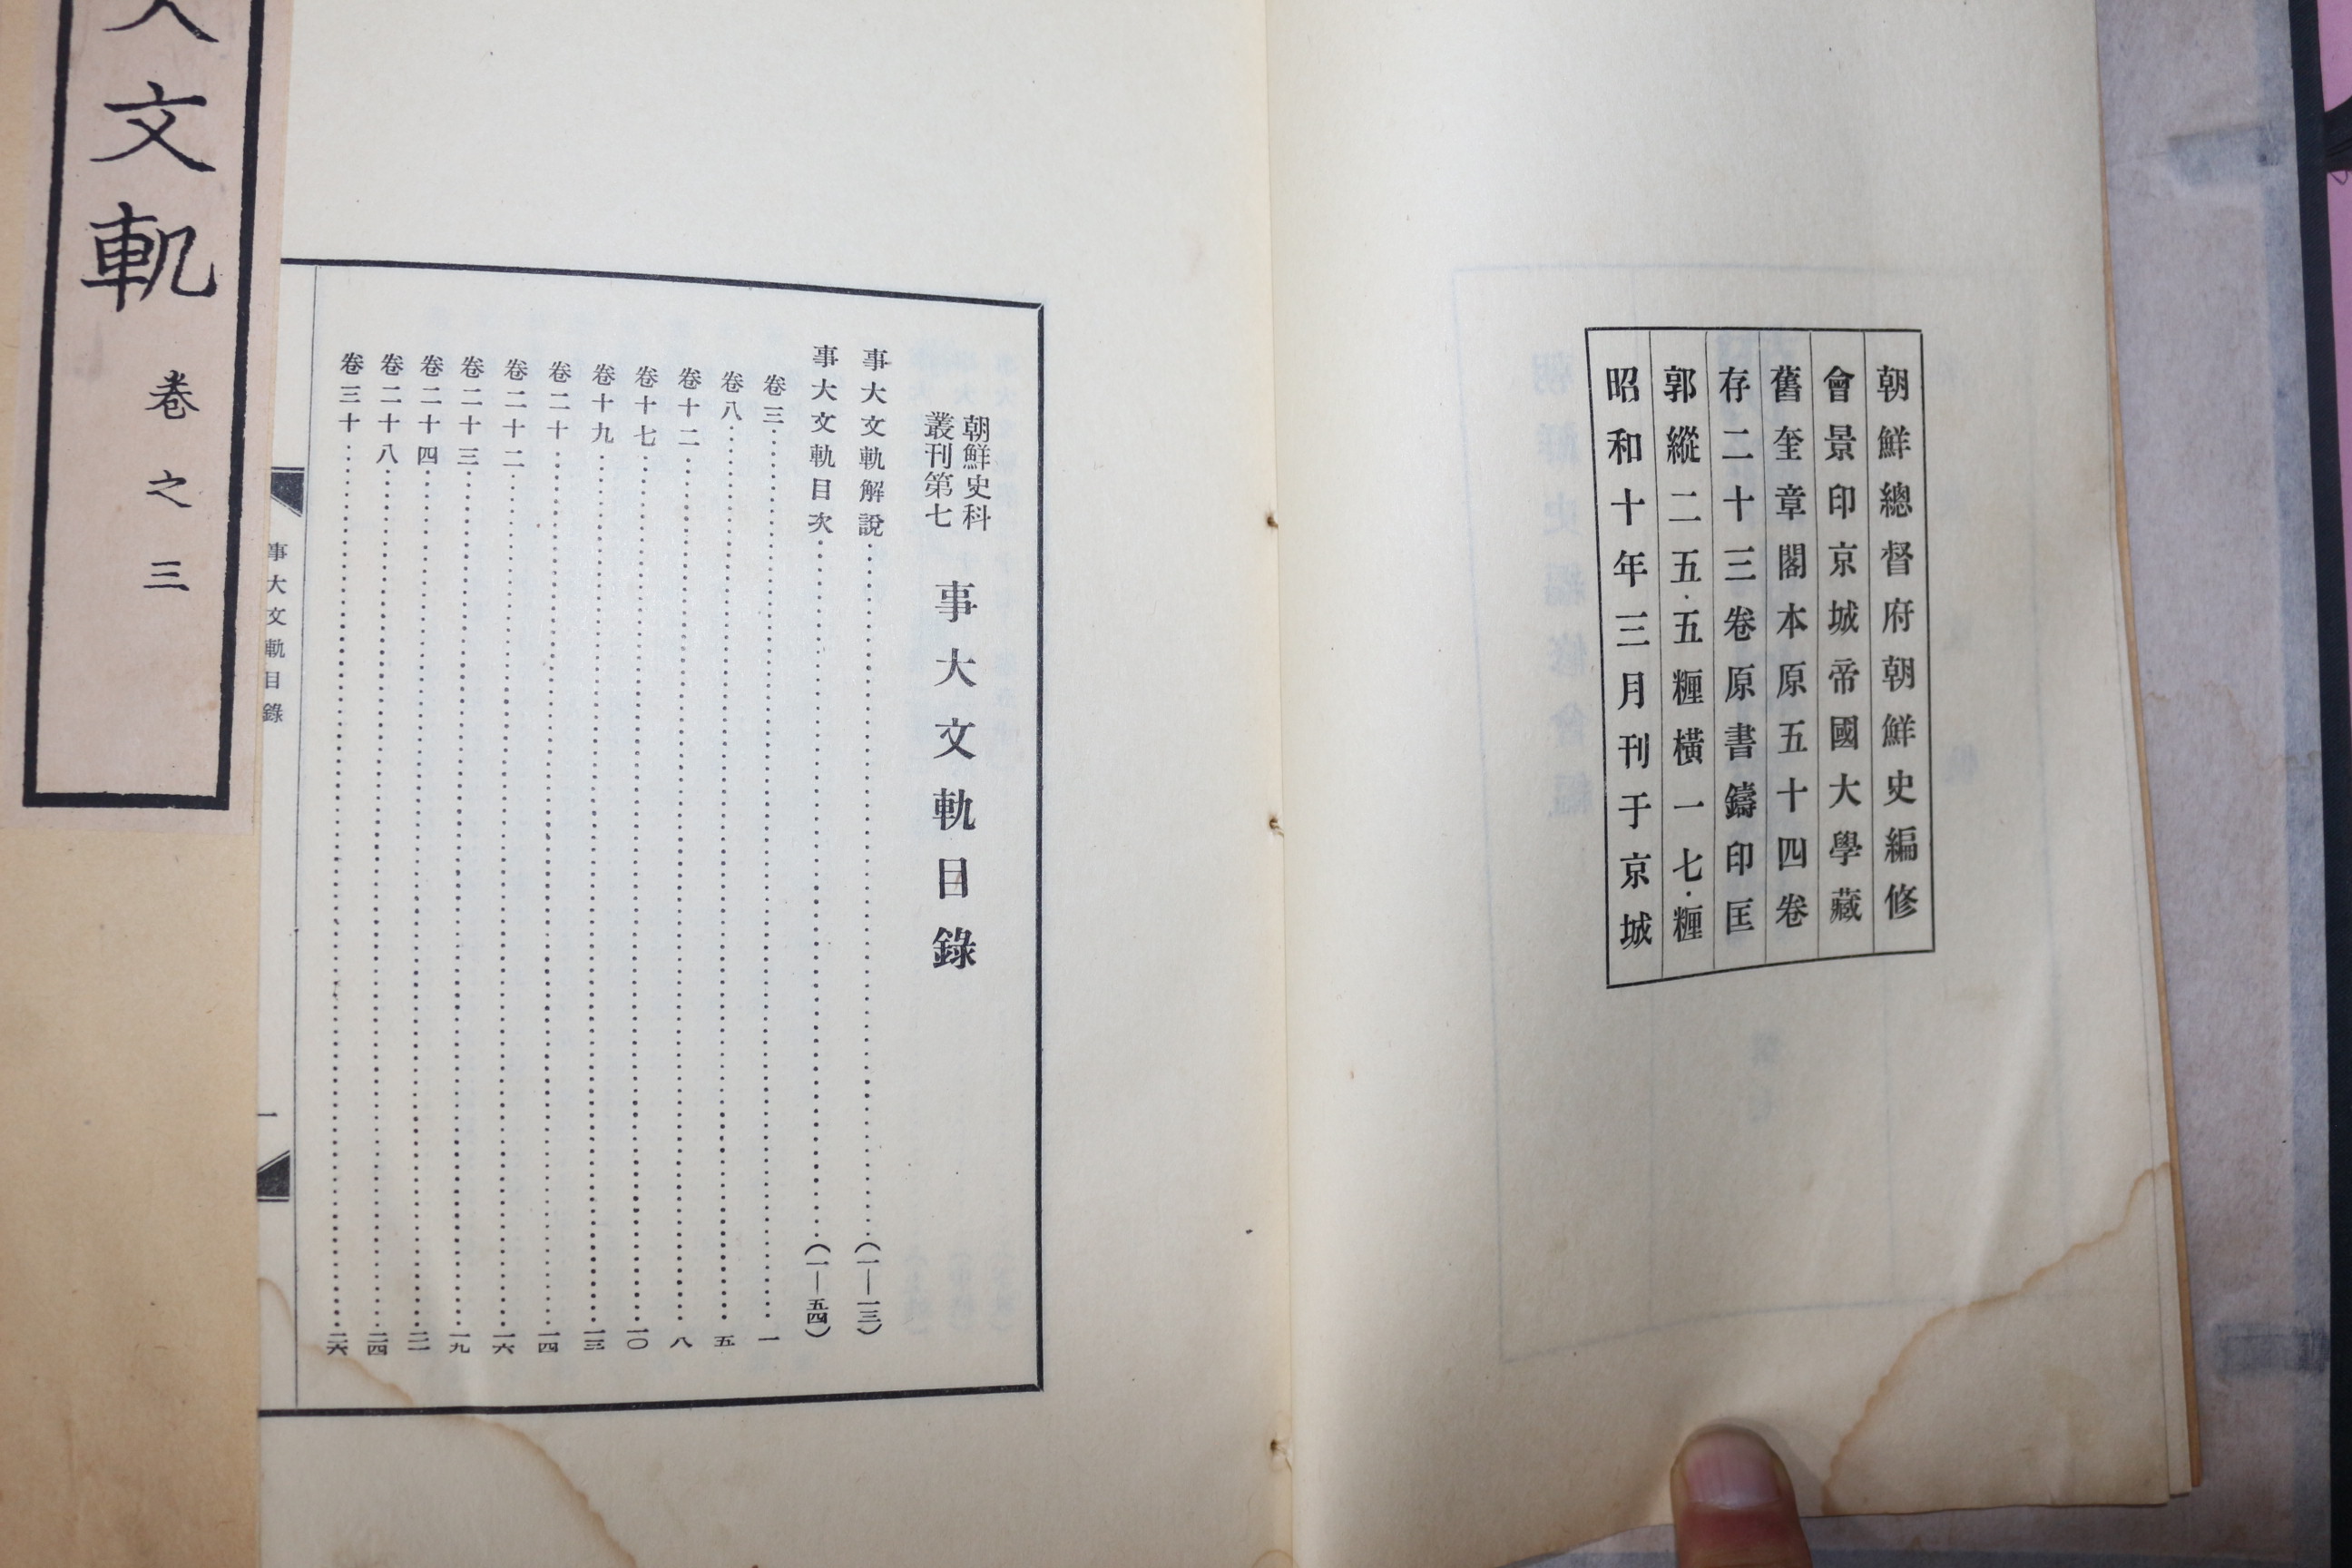 朝鮮總督府朝鮮史編修
會景印京城帝國大學藏
舊奎章閣本原五十四卷
存二十三卷原書鑄印匡
郭縱二五·五糎橫一七·糎
昭和十年三月刊于京城
朝鮮史料
叢刊第七
事大文軌目錄
事大文軌解說……(一—一三)
事大文軌目次……(一—五四)
卷三……一
卷八……五
卷十二……八
卷十七……一〇
卷十九……一三
卷二十……一四
卷二十二……一六
卷二十三……一九
卷二十四……二一
卷二十八……二四
卷三十……二六
事大文軌目錄
一
大文軌
卷之三